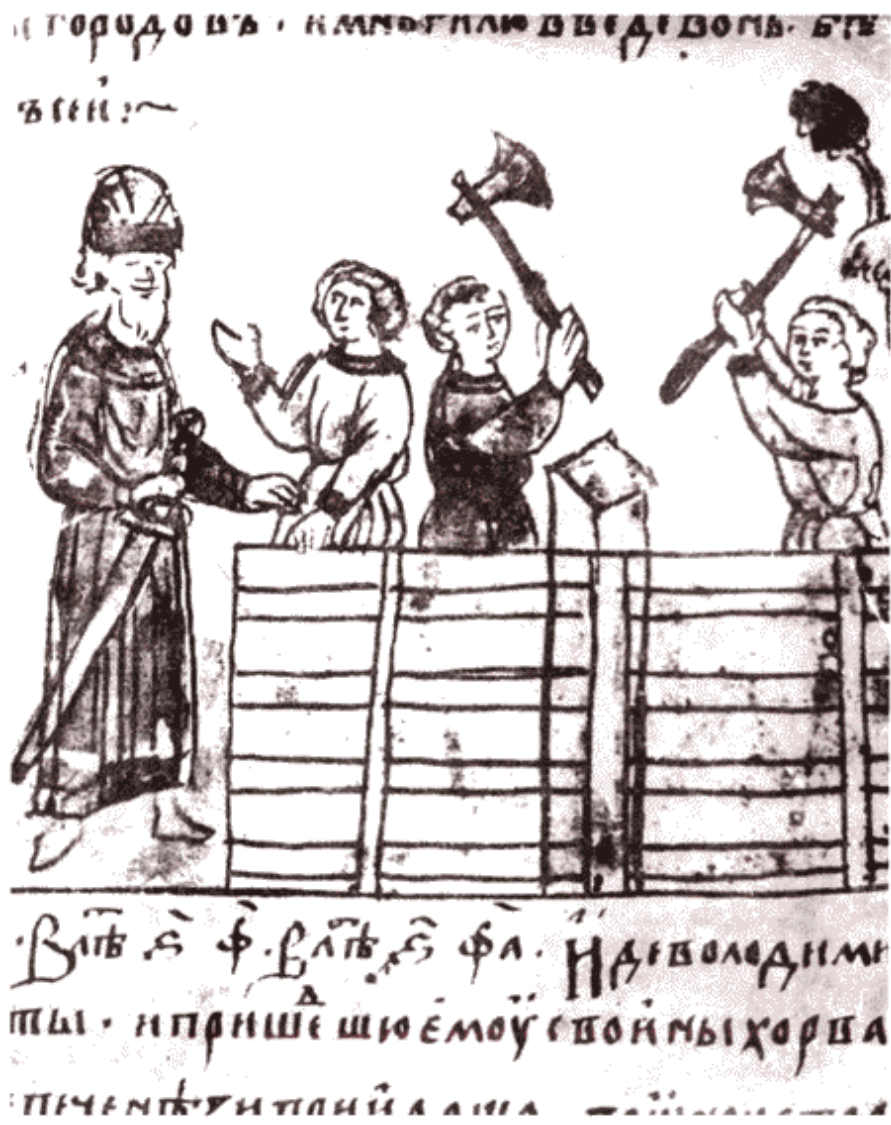 городовъ · и многи лю введевонь · бѣ
ъсей :~
· В лⷮѣ ѕ҃ ф҃ · В лⷮѣ ѕ҃ ф҃а · Иде володиме
ты · и пришеⷣшю емоу свойны хорва
печенѣзи прийдоша